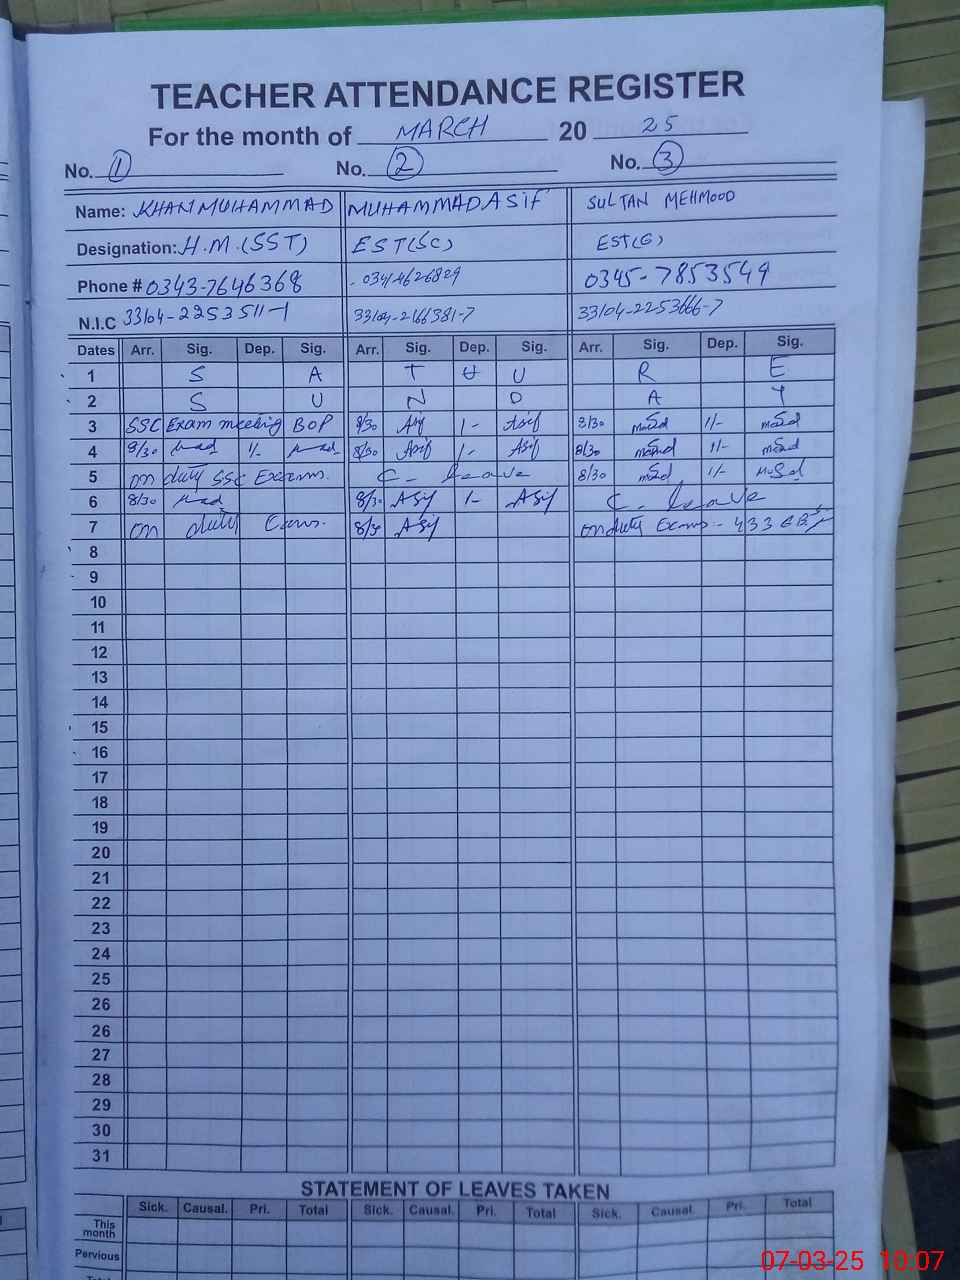 TEACHER ATTENDANCE REGISTER
For the month of MARCH 20 25
No. 1 No. 2 No. 3
Name: KHAN MUHAMMAD MUHAMMAD ASIF SULTAN MEHMOOD
Designation: H.M.(SST) EST(SC) EST(G)
Phone # 0343-7646368 0345-7853549
N.I.C 33104-2253511-1 33104-2166381-7 33104-2253666-7
Dates Arr. Sig. Dep. Sig. Arr. Sig. Dep. Sig. Arr. Sig. Dep. Sig.
1 S A T U R E
2 S U N D A Y
3 SSC Exam meeting BOP 8/30 Asif 1/- Asif 8/30 1/-
4 8/30 1/- 8/30 Asif 1/- Asif 8/30 1/-
5 on duty SSC Exams. C. leave 8/30 1/-
6 8/30 8/30 Asif 1/- Asif C. leave
7 on duty Exams. 8/30 Asif on duty Exams - 433
8
9
10
11
12
13
14
15
16
17
18
19
20
21
22
23
24
25
26
26
27
28
29
30
31
STATEMENT OF LEAVES TAKEN
Sick. Causal. Pri. Total Sick. Causal. Pri. Total Sick. Causal Pri. Total
This month
Pervious
07-03-25 10:07